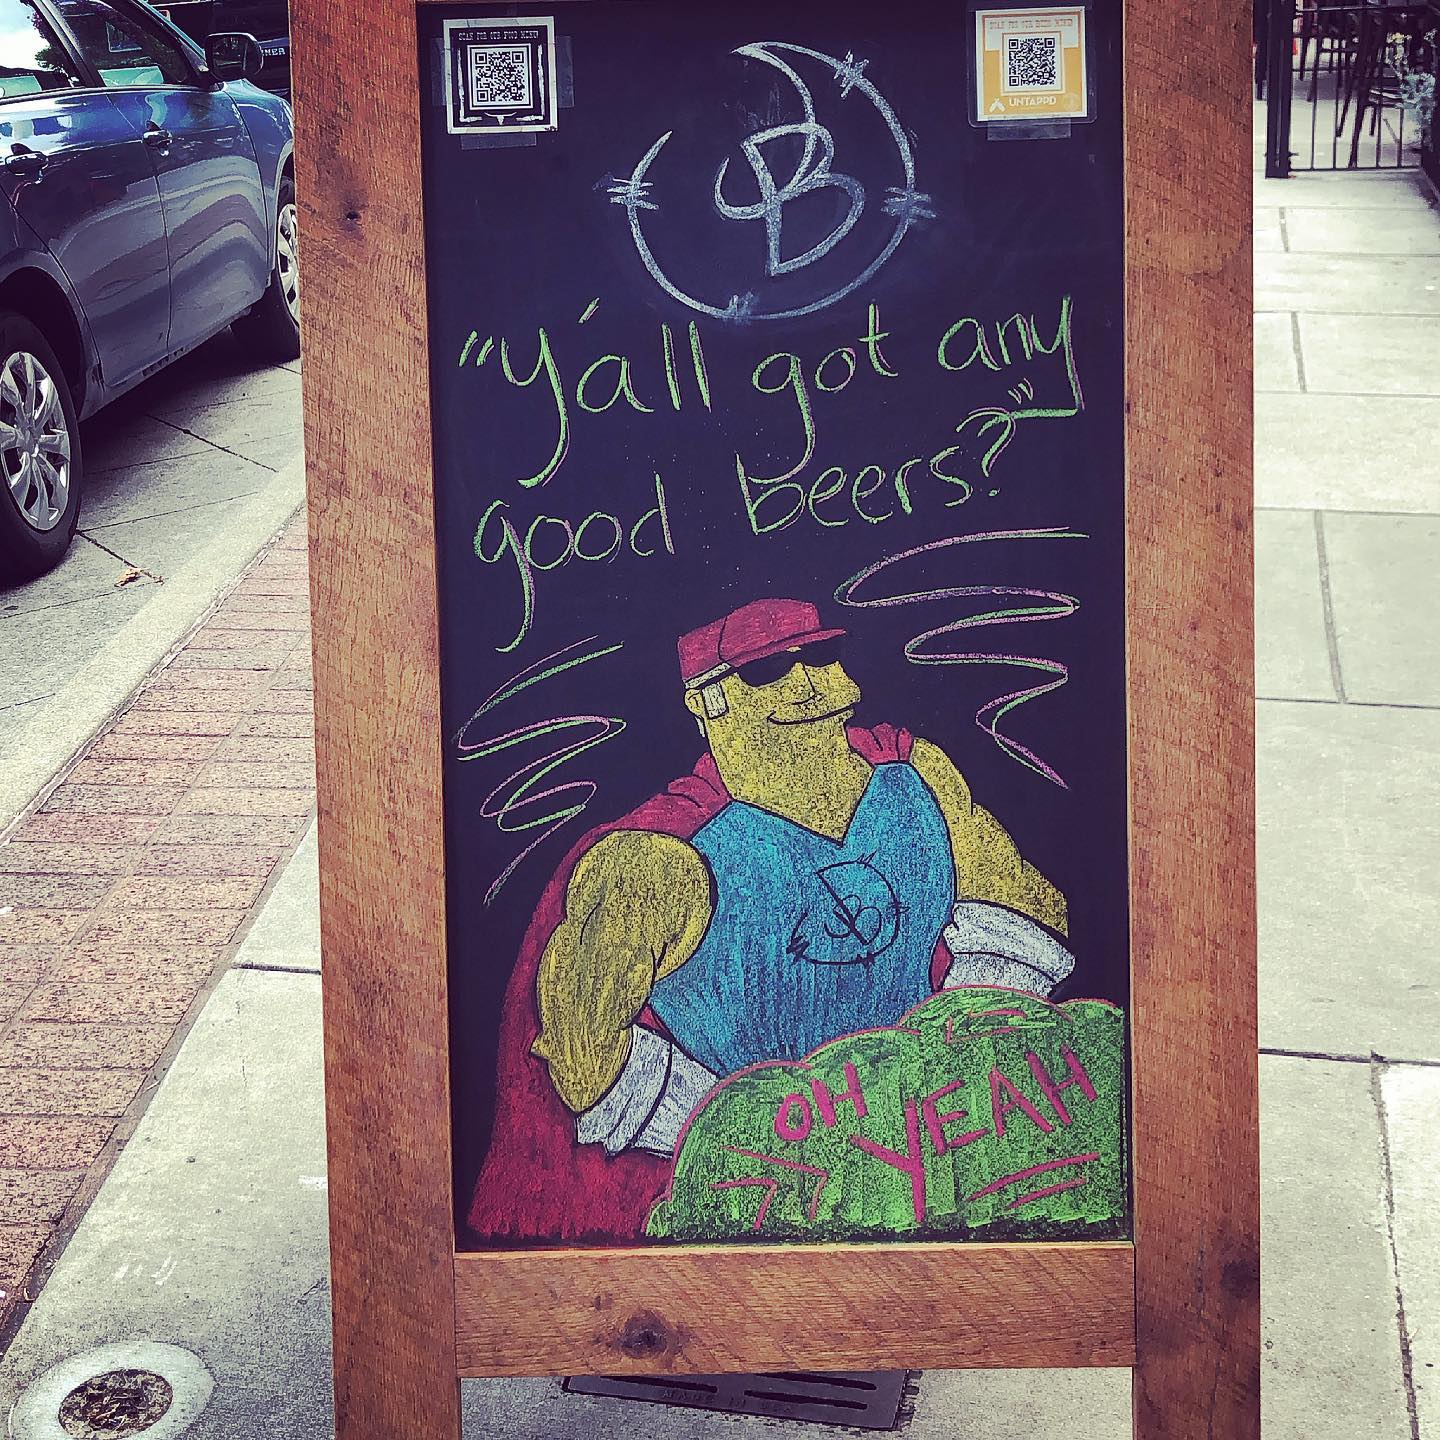 SCAN FOR OUR FOOD MENU!
SCAN FOR OUR BEER MENU!
UNTAPPD
B
"Y'all got any
good beers?"
B
OH
YEAH
MADE IN USA